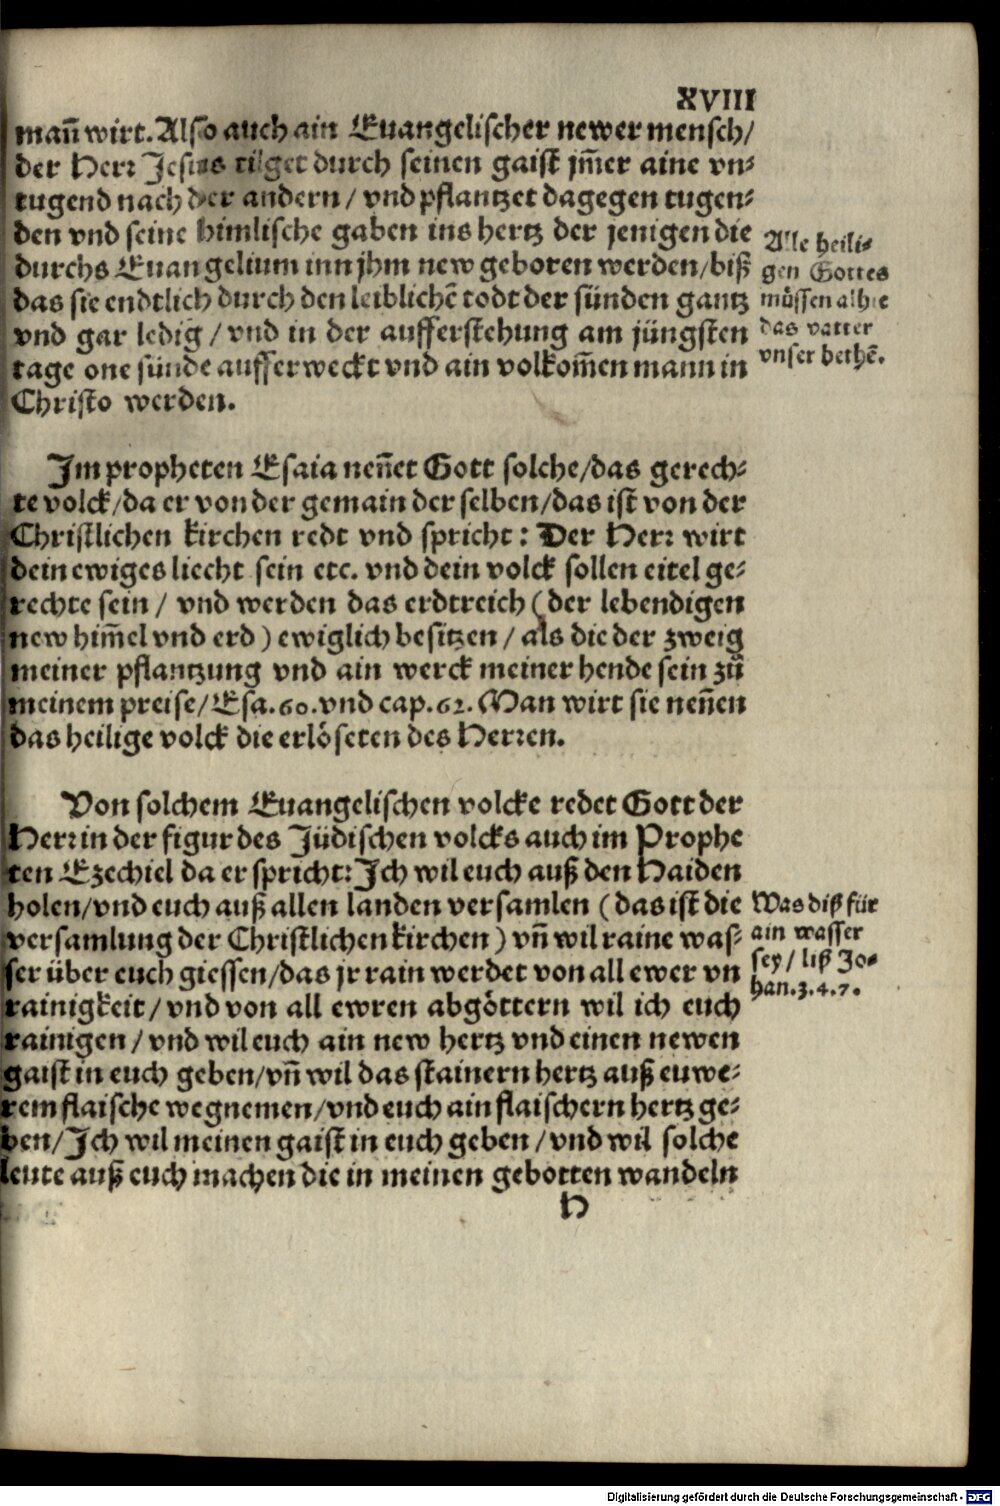 XVIII
mañ wirt. Also auch ain Euangelischer newer mensch/
der Herr Jesus tilget durch seinen gaist jm̃er aine vn-
tugend nach der andern / vnd pflantzet dagegen tugen-
den vnd seine himlische gaben ins hertz der jenigen die
durchs Euangelium inn jhm new geboren werden/biß
das sie endtlich durch den leiblichẽ todt der sünden gantz
vnd gar ledig / vnd in der aufferstehung am jüngsten
tage one sünde aufferweckt vnd ain volkom̃en mann in
Christo werden.
Alle heili-
gen Gottes
müssen alhie
das vatter
vnser bethẽ.
Im propheten Esaia neñet Gott solche/das gerech-
te volck/da er von der gemain der selben/das ist von der
Christlichen kirchen redt vnd spricht: Der Herr wirt
dein ewiges liecht sein etc. vnd dein volck sollen eitel ge-
rechte sein / vnd werden das erdtreich (der lebendigen
new him̃el vnd erd) ewiglich besitzen / als die der zweig
meiner pflantzung vnd ain werck meiner hende sein zů
meinem preise/Esa.60.vnd cap.62. Man wirt sie neñen
das heilige volck die erlöseten des Herren.
Von solchem Euangelischen volcke redet Gott der
Herr in der figur des Jüdischen volcks auch im Prophe
ten Ezechiel da er spricht: Ich wil euch auß den Haiden
holen/vnd euch auß allen landen versamlen (das ist die
versamlung der Christlichen kirchen) vñ wil raine was-
ser über euch giessen/das jr rain werdet von all ewer vn
rainigkeit/vnd von all ewren abgöttern wil ich euch
rainigen/vnd wil euch ain new hertz vnd einen newen
gaist in euch geben/vñ wil das stainern hertz auß euwe-
rem flaische wegnemen/vnd euch ain flaischern hertz ge-
ben/Ich wil meinen gaist in euch geben/vnd wil solche
leute auß euch machen die in meinen gebotten wandeln
Was diß für
ain wasser
sey/ liß Jo-
han.3.4.7.
H
Digitalisierung gefördert durch die Deutsche Forschungsgemeinschaft - DFG